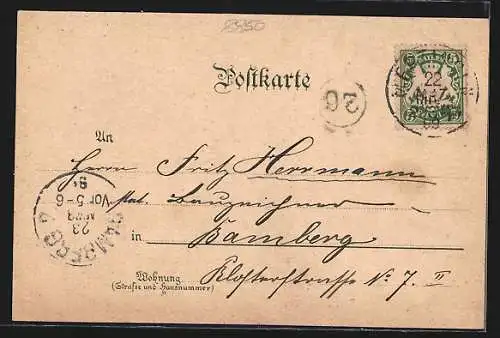 2350
Postkarte
26
22
MRZ
An
Herrn Fritz Herrmann
Bauzeichner
in Bamberg
BAMBERG
23
Vor. 5-6
Wohnung
(Straße und Hausnummer)
Klosterstrasse No 7. II